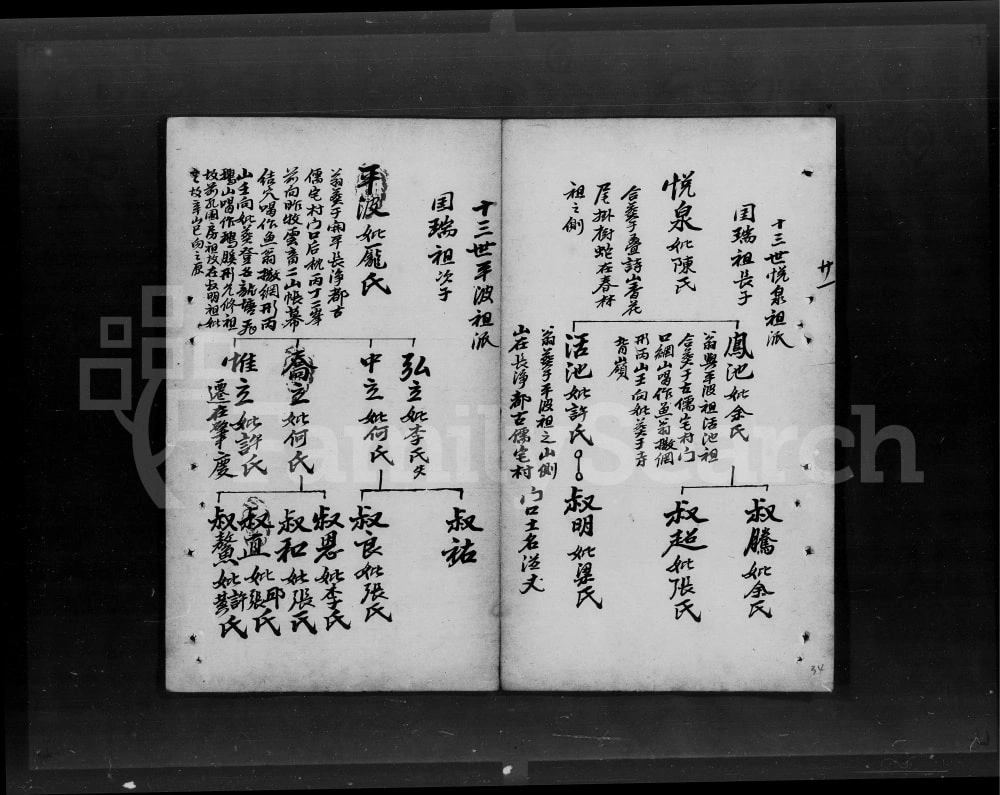 十三世悦泉祖派
国瑞祖長子
悦泉 妣陳氏
合葬于疊詩山香花
尾掛樹蛇在春林
祖之側
鳳池 妣余氏
翁與平波祖活池祖
合葬于古儒宅村门
口網山唱作魚翁撒網
形丙山壬向妣葬于寺
背嶺
活池 妣許氏
翁葬于平波祖之山側
山在長净都古儒宅村
门口土名
叔騰 妣余氏
叔超 妣張氏
叔明 妣梁氏
34
十三世平波祖派
国瑞祖次子
平波 妣龐氏
翁葬于開平長净都古
儒宅村门口后杭丙丁二峯
前向昨牧雲斎二山帳幕
結穴唱作魚翁撒網形丙
山壬向妣葬登名龍塘飛
鵝山唱作
弘立 妣李氏
中立 妣何氏
喬立 妣何氏
惟立 妣許氏
遷在肇慶
叔祐
叔良 妣張氏
叔恩 妣李氏
叔和 妣張氏
叔直 妣邱張氏
叔鰲 妣許黄氏
FamilySearch